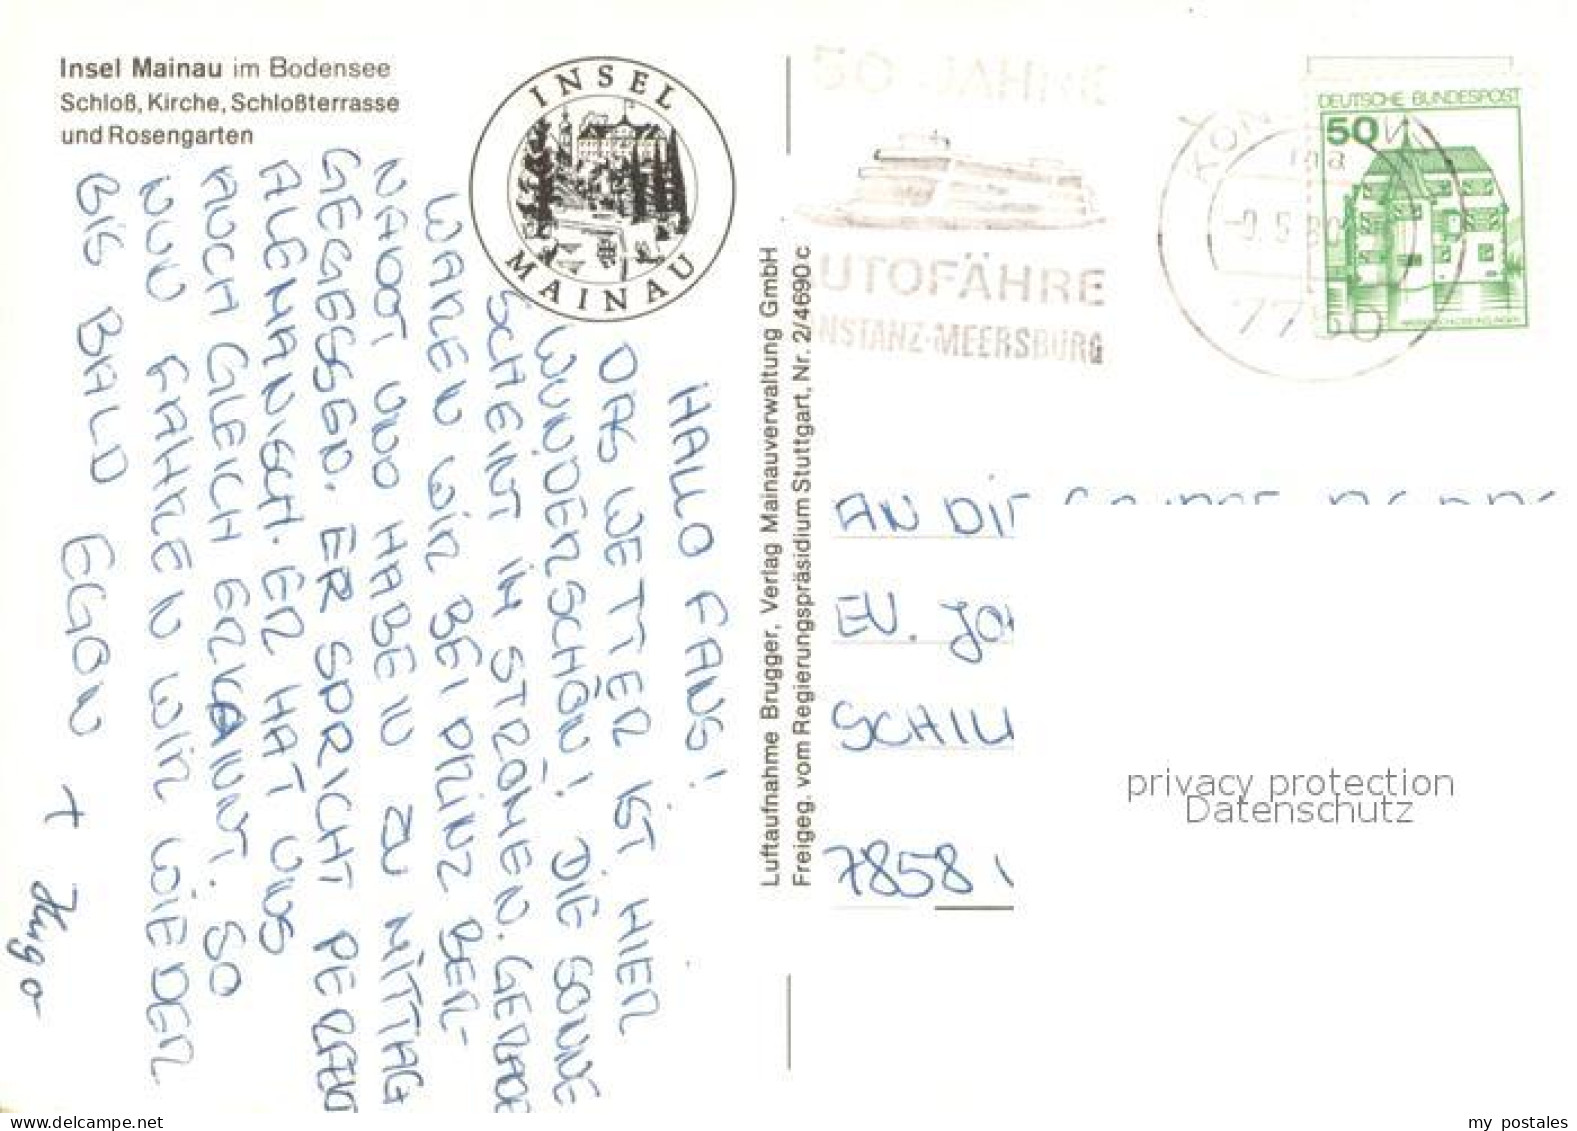 Insel Mainau im Bodensee
Schloß, Kirche, Schloßterrasse
und Rosengarten
INSEL
MAINAU
HALLO FANS!
DAS WETTER IST HIER
WUNDERSCHÖN! DIE SONNE
SCHEINT IN STRÖMEN. GERADE
WAREN WIR BEI PRINZ BER-
NADOT UND HABEN ZU MITTAG
GEGESSEN. ER SPRICHT PERFEKT
ALEMANISCH. ER HAT UNS
AUCH GLEICH ERKANNT. SO
NUN FAHREN WIR WIEDER.
BIS BALD EGON + Hugo
Luftaufnahme Brugger, Verlag Mainauverwaltung GmbH
Freigeg. vom Regierungspräsidium Stuttgart, Nr. 2/4690 c
50 JAHRE
AUTOFÄHRE
KONSTANZ-MEERSBURG
KON
7750
DEUTSCHE BUNDESPOST
50
AN DIE
EV.
7858
privacy protection
Datenschutz
www.delcampe.net
my_postales